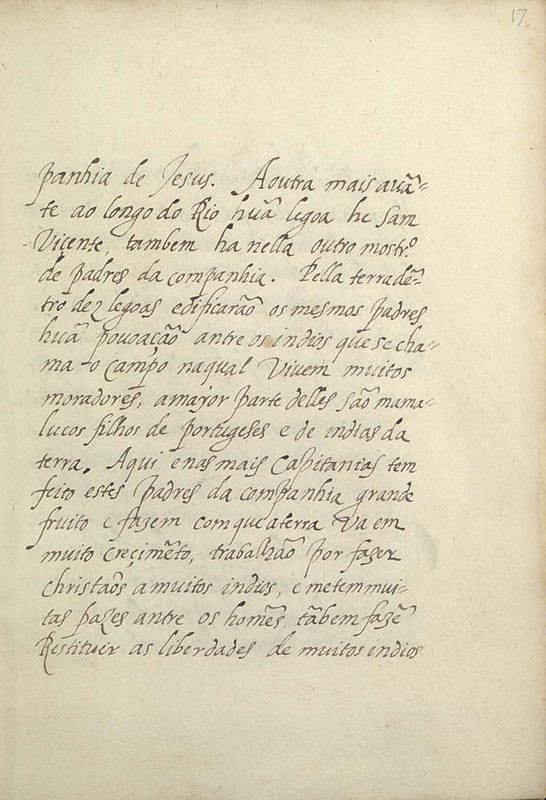 17
panhia de Jesus. Aoutra mais auã-
te ao longo do Rio huã legoa he Sam
Vicente, tambem ha nella outro mostr.º
de padres da companhia. Pella terra dẽ-
tro dez legoas edificarão os mesmos padres
huã pouoação antre os indios que se cha-
ma o campo na qual Viuem muitos
moradores, a mayor parte delles são mama-
lucos filhos de portugeses e de indias da
terra. Aqui e nas mais Capitanias tem
feito estes padres da companhia grande
fruito e fazem com que a terra Va em
muito creçimẽto, trabalhão por fazer
christãos a muitos indios, e metem mui-
tas pazes antre os homẽs, tãbem fazẽ
Restituir as liberdades de muitos indios